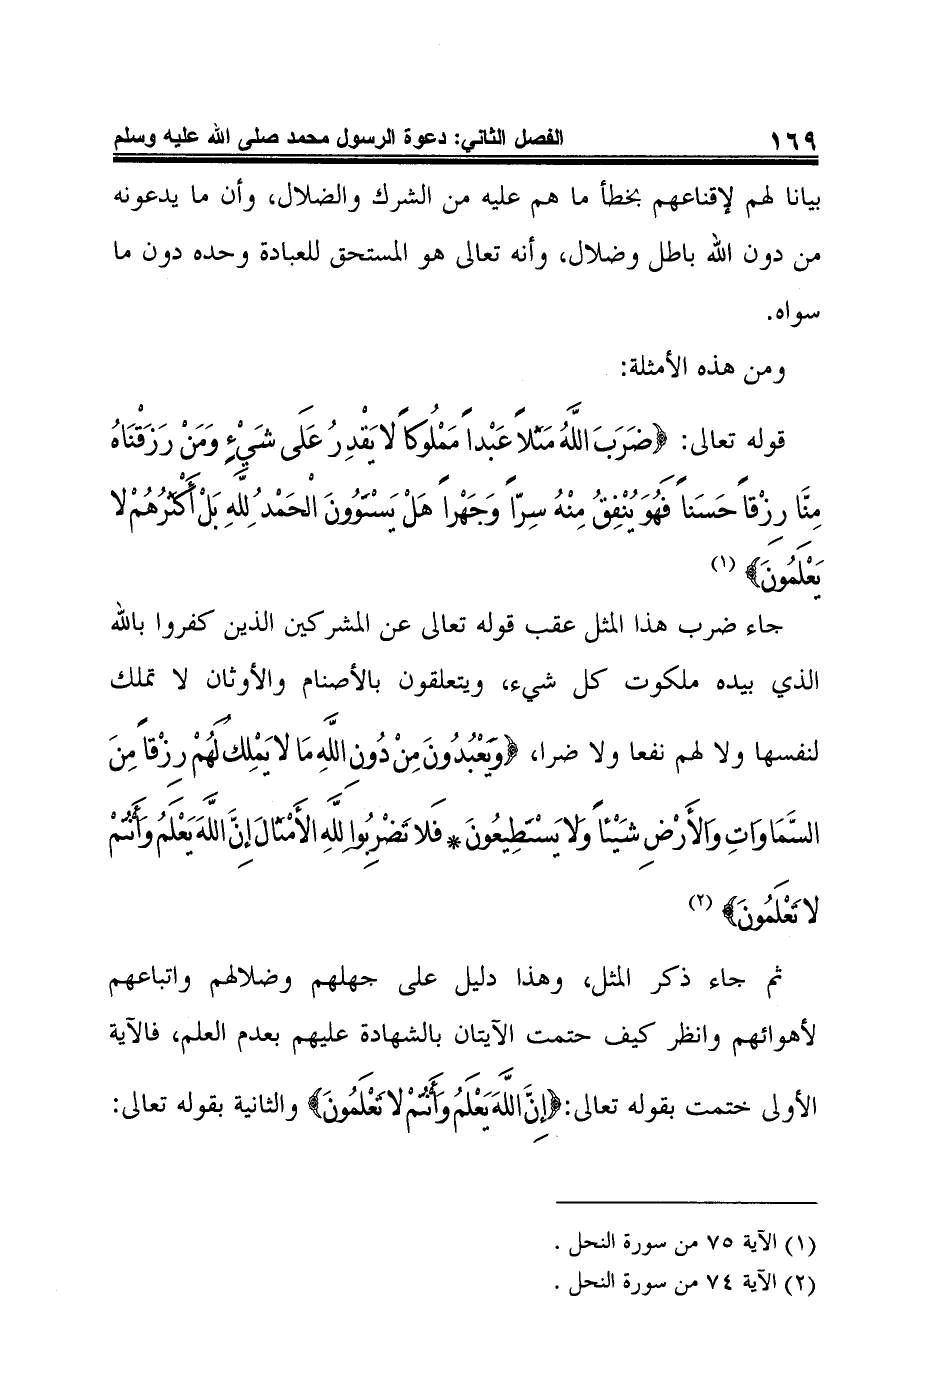 ١٦٩ الفصل الثاني: دعوة الرسول محمد صلى الله عليه وسلم
بيانا لهم لإقناعهم بخطأ ما هم عليه من الشرك والضلال، وأن ما يدعونه
من دون الله باطل وضلال، وأنه تعالى هو المستحق للعبادة وحده دون ما
سواه.
ومن هذه الأمثلة:
قوله تعالى: ﴿ضَرَبَ اللَّهُ مَثَلاً عَبْداً مَمْلُوكاً لا يَقْدِرُ عَلَى شَيْءٍ وَمَنْ رَزَقْنَاهُ
مِنَّا رِزْقاً حَسَناً فَهُوَ يُنْفِقُ مِنْهُ سِرّاً وَجَهْراً هَلْ يَسْتَوُونَ الْحَمْدُ لِلَّهِ بَلْ أَكْثَرُهُمْ لا
يَعْلَمُونَ﴾ (١)
جاء ضرب هذا المثل عقب قوله تعالى عن المشركين الذين كفروا بالله
الذي بيده ملكوت كل شيء، ويتعلقون بالأصنام والأوثان لا تملك
لنفسها ولا لهم نفعا ولا ضرا، ﴿وَيَعْبُدُونَ مِنْ دُونِ اللَّهِ مَا لا يَمْلِكُ لَهُمْ رِزْقاً مِنَ
السَّمَاوَاتِ وَالأَرْضِ شَيْئاً وَلا يَسْتَطِيعُونَ * فَلا تَضْرِبُوا لِلَّهِ الأَمْثَالَ إِنَّ اللَّهَ يَعْلَمُ وَأَنْتُمْ
لا تَعْلَمُونَ﴾ (٢)
ثم جاء ذكر المثل، وهذا دليل على جهلهم وضلالهم واتباعهم
لأهوائهم وانظر كيف ختمت الآيتان بالشهادة عليهم بعدم العلم، فالآية
الأولى ختمت بقوله تعالى: ﴿إِنَّ اللَّهَ يَعْلَمُ وَأَنْتُمْ لا تَعْلَمُونَ﴾ والثانية بقوله تعالى:
(١) الآية ٧٥ من سورة النحل .
(٢) الآية ٧٤ من سورة النحل .